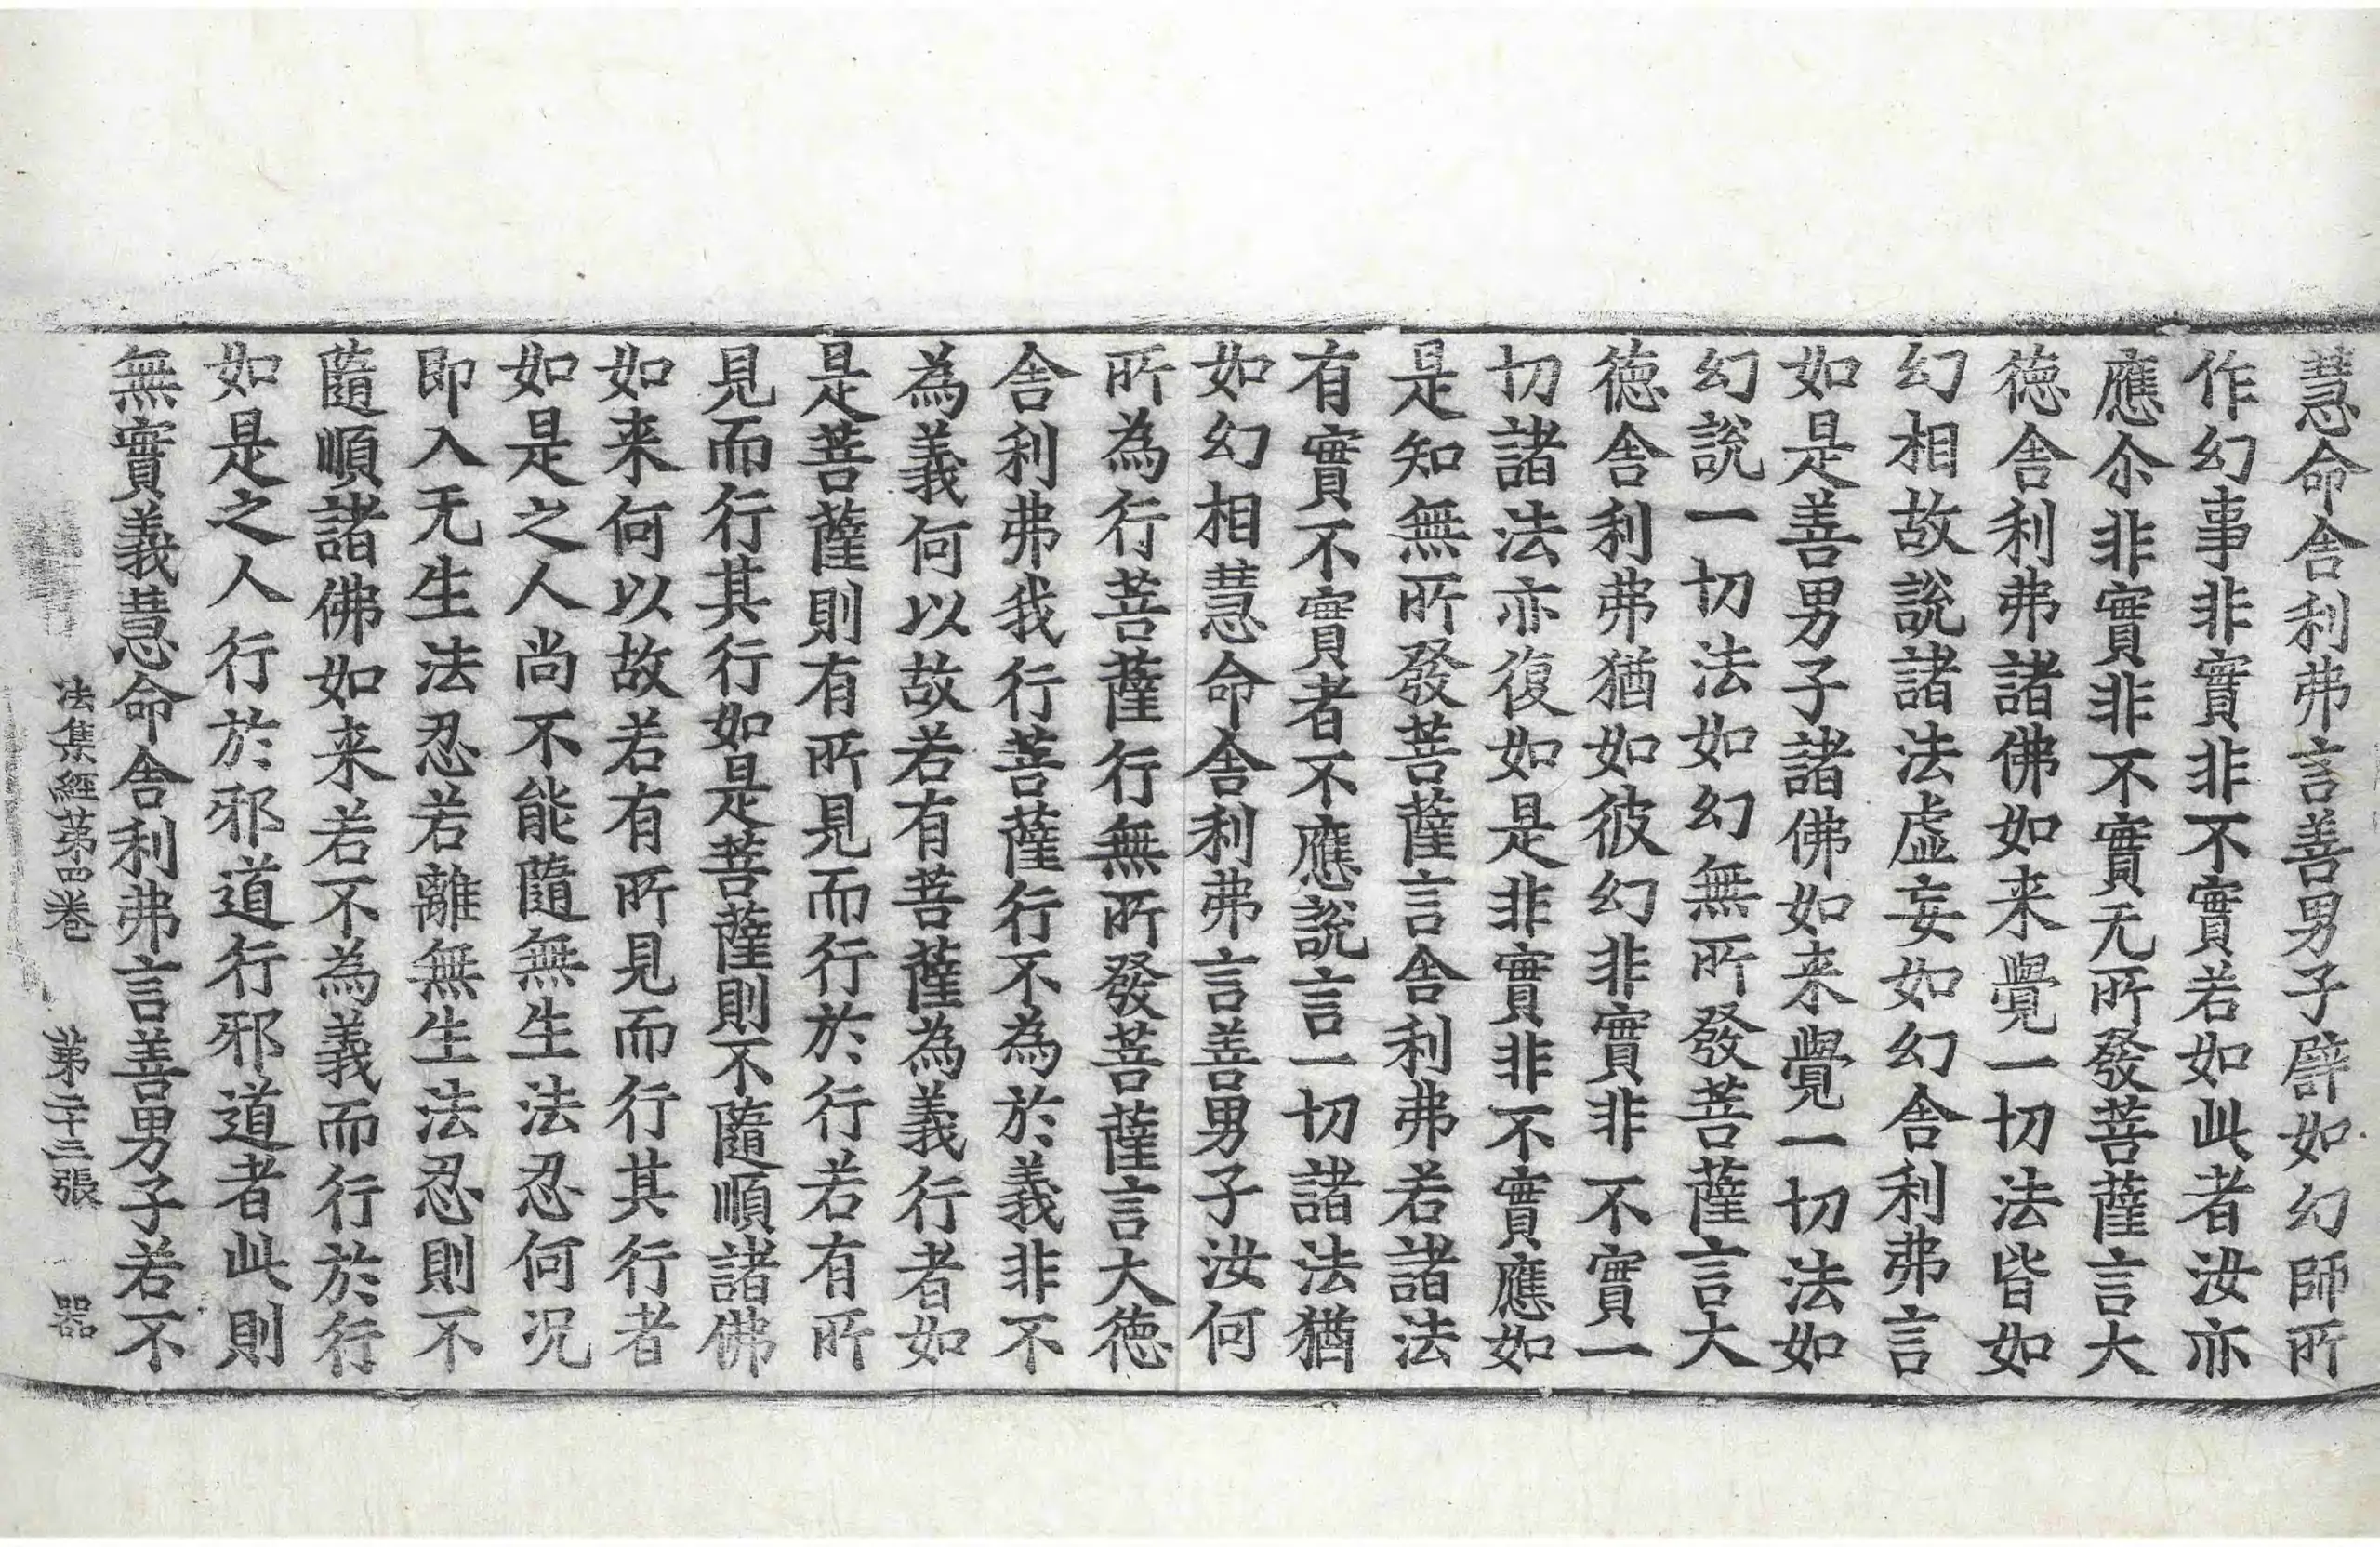 慧命舍利弗言善男子譬如幻師所
作幻事非實非不實若如此者汝亦
應尒非實非不實无所發菩薩言大
徳舍利弗諸佛如来覺一切法皆如
幻相故說諸法虛妄如幻舍利弗言
如是善男子諸佛如来覺一切法如
幻說一切法如幻無所發菩薩言大
徳舍利弗猶如彼幻非實非不實一
切諸法亦復如是非實非不實應如
是知無所發菩薩言舍利弗若諸法
有實不實者不應說言一切諸法猶
如幻相慧命舍利弗言善男子汝何
所為行菩薩行無所發菩薩言大徳
舍利弗我行菩薩行不為於義非不
為義何以故若有菩薩為義行者如
是菩薩則有所見而行於行若有所
見而行其行如是菩薩則不隨順諸佛
如来何以故若有所見而行其行者
如是之人尚不能隨無生法忍何况
即入无生法忍若離無生法忍則不
隨順諸佛如来若不為義而行於行
如是之人行於邪道行邪道者此則
無實義慧命舍利弗言善男子若不
法集經第四卷 第二十三張 器